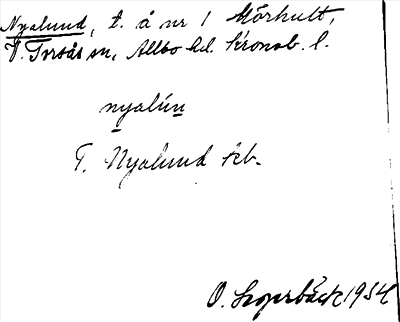 Nyalund, t. å nr 1 Mörhult,
V. Torsås sn, Allbo hd. Kronob. l.
nyalún
T. Nyalund
O. 1954